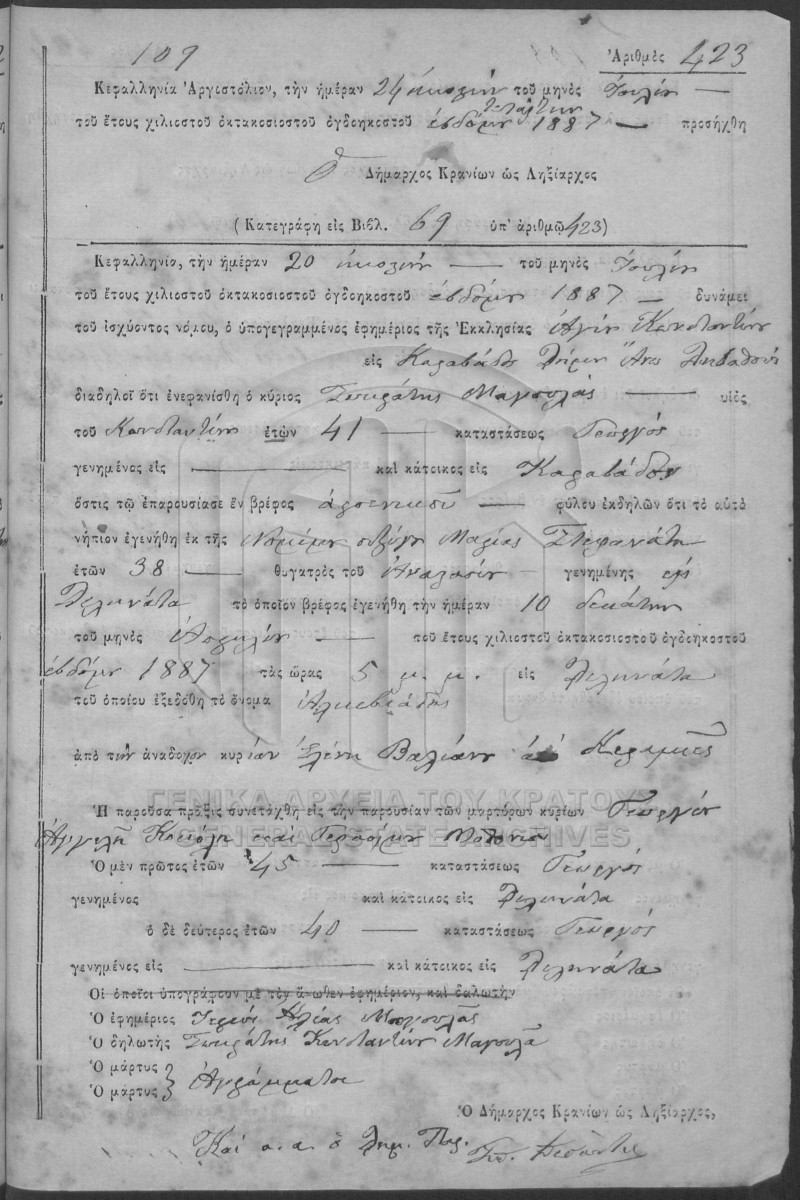 109 Ἀριθμὸς 423
Κεφαλληνία Ἀργοστόλιον, τὴν ἡμέραν 24 εἰκοστὴν τοῦ μηνὸς Ἰουλίου
τετάρτην
τοῦ ἔτους χιλιοστοῦ ὀκτακοσιοστοῦ ὀγδοηκοστοῦ ἑβδόμου 1887 προσήχθη
Ὁ Δήμαρχος Κρανίων ὡς Ληξίαρχος
(Κατεγράφη εἰς Βιβλ. 69 ὑπ' ἀριθμῷ 423)
Κεφαλληνία, τὴν ἡμέραν 20 εἰκοστὴν τοῦ μηνὸς Ἰουλίου
τοῦ ἔτους χιλιοστοῦ ὀκτακοσιοστοῦ ὀγδοηκοστοῦ ἑβδόμου 1887 δυνάμει
τοῦ ἰσχύοντος νόμου, ὁ ὑπογεγραμμένος ἐφημέριος τῆς Ἐκκλησίας Ἁγίου Κωνσταντίνου
εἰς Καραβάδο Δήμου Ἄνω Λειβαθοῦς
διαδηλοῖ ὅτι ἐνεφανίσθη ὁ κύριος Σωκράτης Μαγουλᾶς υἱὸς
τοῦ Κωνσταντίνου ἐτῶν 41 καταστάσεως Γεωργός
γενημένος εἰς καὶ κάτοικος εἰς Καραβάδον
ὅστις τῷ ἐπαρουσίασε ἓν βρέφος ἀρσενικοῦ φύλου ἐκδηλῶν ὅτι τὸ αὐτὸ
νήπιον ἐγενήθη ἐκ τῆς Νομίμου συζύγου Μαρίας Στεφανάτου
ἐτῶν 38 θυγατρὸς τοῦ Ἀναστασίου γενημένης εἰς
Διλινάτα τὸ ὁποῖον βρέφος ἐγενήθη τὴν ἡμέραν 10 δεκάτην
τοῦ μηνὸς Ἀπριλίου τοῦ ἔτους χιλιοστοῦ ὀκτακοσιοστοῦ ὀγδοηκοστοῦ
ἑβδόμου 1887 τὰς ὥρας 5 μ. μ. εἰς Διλινάτα
τοῦ ὁποίου ἐξεδόθη τὸ ὄνομα Ἀλκιβιάδης
ἀπὸ τὴν ἀνάδοχον κυρίαν Ἑλένη Βαλιάνου ἀπό Κεραμειές
ΓΕΝΙΚΑ ΑΡΧΕΙΑ ΤΟΥ ΚΡΑΤΟΥΣ
Ἡ παροῦσα πρᾶξις συνετάχθη εἰς τὴν παρουσίαν τῶν μαρτύρων κυρίων Γεωργίου
GENERAL STATE ARCHIVES
Ἀγγελῆ καὶ Γερασίμου
Ὁ μὲν πρῶτος ἐτῶν 45 καταστάσεως Γεωργός
γενημένος καὶ κάτοικος εἰς Διλινάτα
ὁ δὲ δεύτερος ἐτῶν 40 καταστάσεως Γεωργός
γενημένος εἰς καὶ κάτοικος εἰς Διλινάτα
Οἱ ὁποῖοι ὑπογράφουν μὲ τὸν ἄνωθεν ἐφημέριον, καὶ δηλωτὴν
Ὁ ἐφημέριος Ἱερεὺς Ἠλίας Μαγουλᾶς
Ὁ δηλωτὴς Σωκράτης Κωνσταντίνου Μαγουλᾶ
Ὁ μάρτυς
Ὁ μάρτυς Ἀγράμματοι
Ὁ Δήμαρχος Κρανίων ὡς Ληξίαρχος,
Καὶ α. α. ὁ Δημ. Παρ.